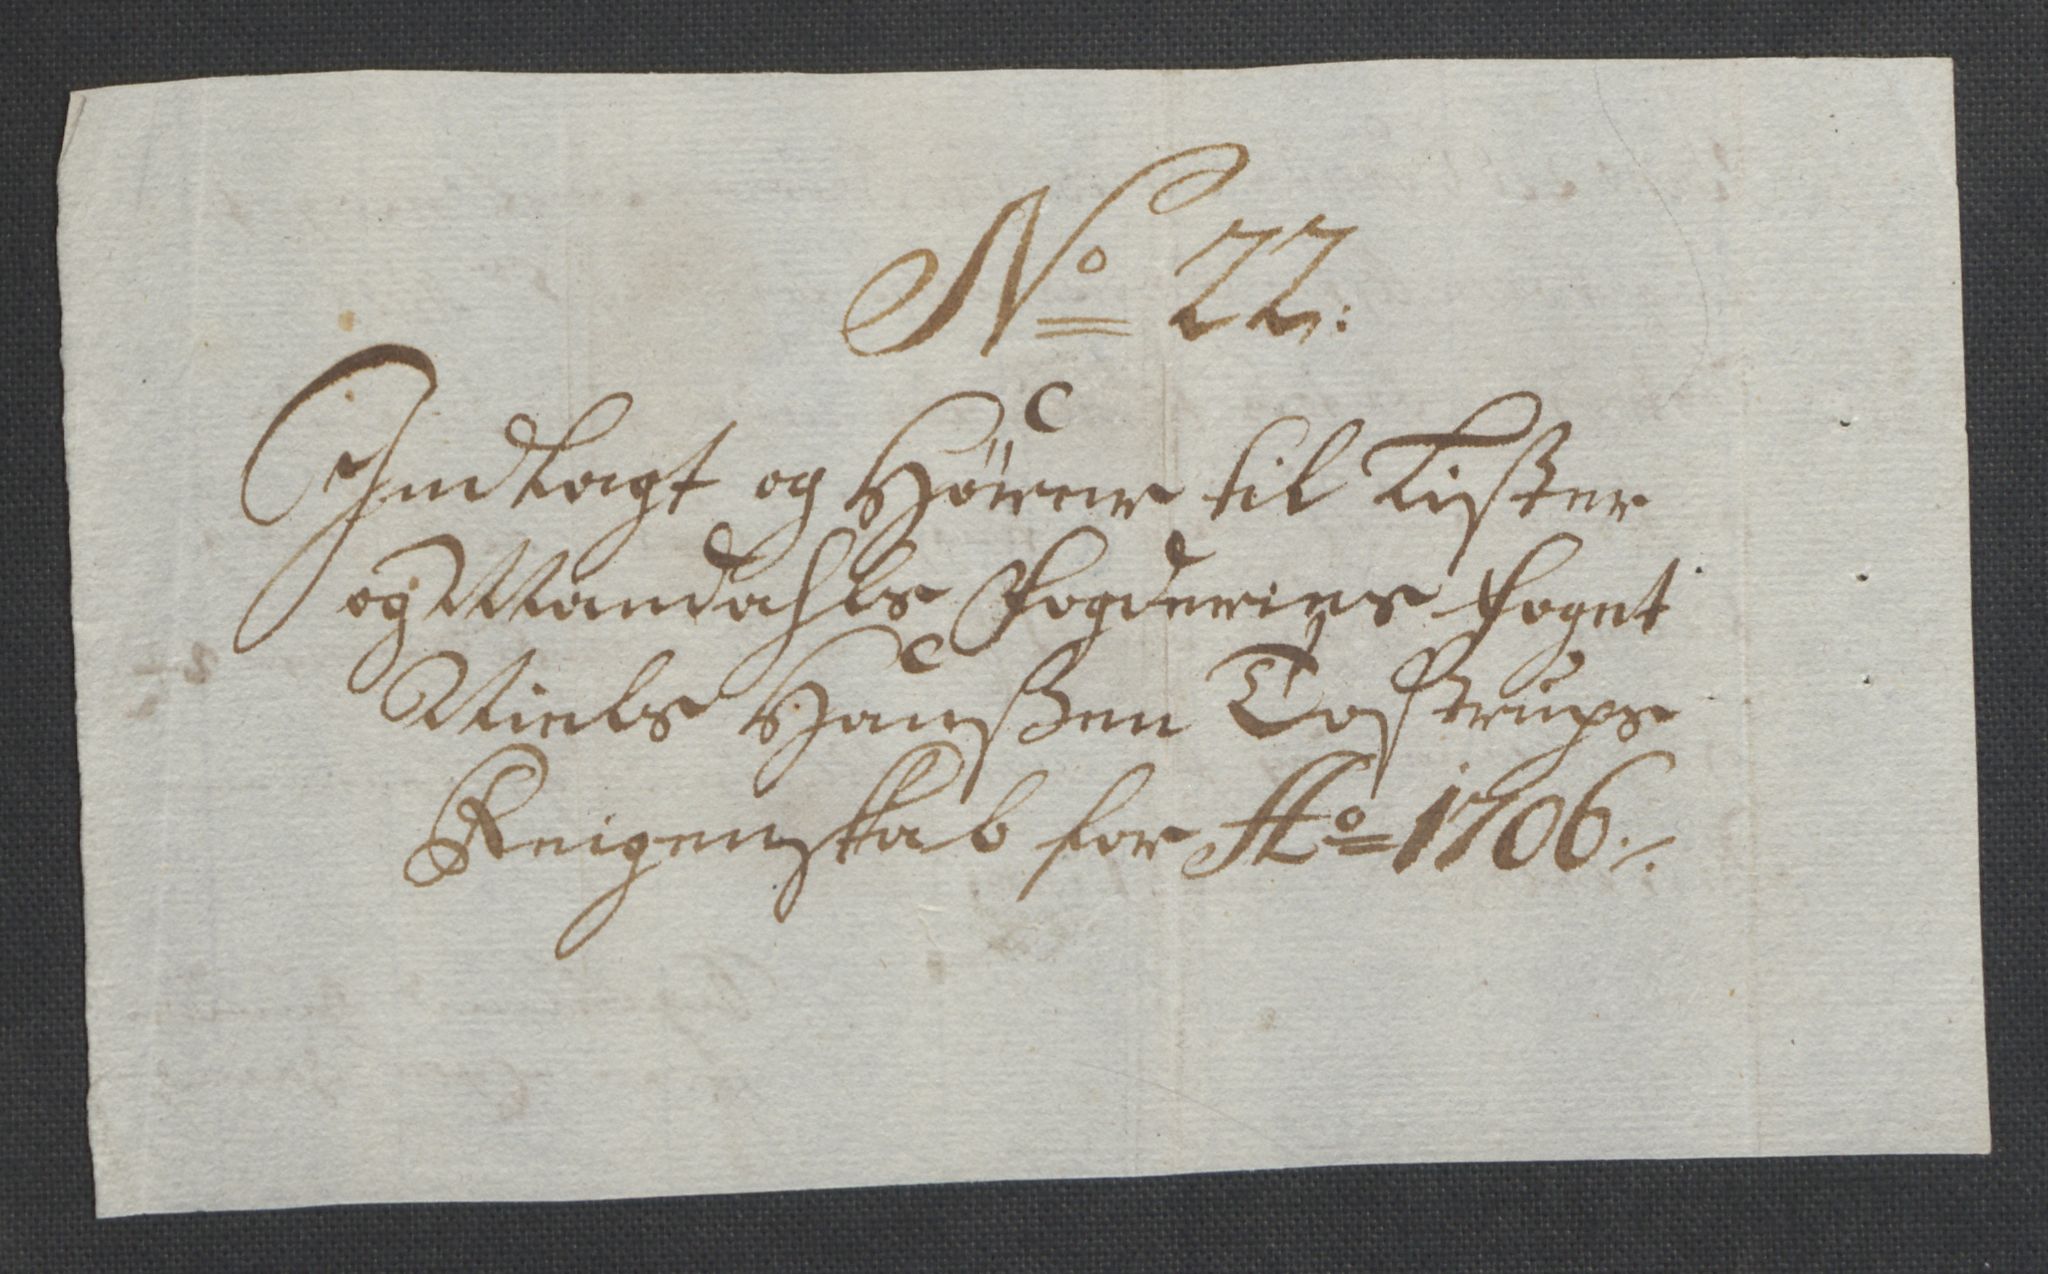 No 22:
Indlagt og Hörer til Lister
og Mandahls Fogderies Foget
Niels Hanßen Tostrups
Reigenskab for Ao 1706